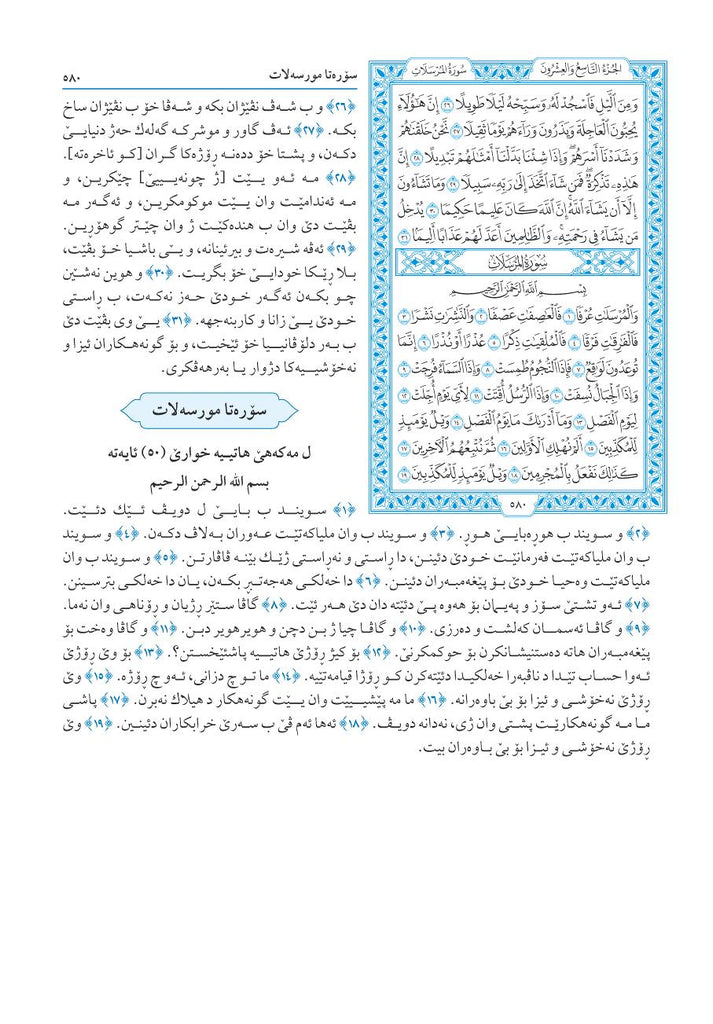 سۆرەتا مورسەلات
٥٨٠
الجُزْءُ التَّاسِعُ وَالعِشْرُونَ
سُورَةُ المُرْسَلَاتِ
وَمِنَ ٱلَّيۡلِ فَٱسۡجُدۡ لَهُۥ وَسَبِّحۡهُ لَيۡلٗا طَوِيلًا ٢٦ إِنَّ هَٰٓؤُلَآءِ
يُحِبُّونَ ٱلۡعَاجِلَةَ وَيَذَرُونَ وَرَآءَهُمۡ يَوۡمٗا ثَقِيلٗا ٢٧ نَّحۡنُ خَلَقۡنَٰهُمۡ
وَشَدَدۡنَآ أَسۡرَهُمۡۖ وَإِذَا شِئۡنَا بَدَّلۡنَآ أَمۡثَٰلَهُمۡ تَبۡدِيلًا ٢٨ إِنَّ
هَٰذِهِۦ تَذۡكِرَةٞۖ فَمَن شَآءَ ٱتَّخَذَ إِلَىٰ رَبِّهِۦ سَبِيلٗا ٢٩ وَمَا تَشَآءُونَ
إِلَّآ أَن يَشَآءَ ٱللَّهُۚ إِنَّ ٱللَّهَ كَانَ عَلِيمًا حَكِيمٗا ٣٠ يُدۡخِلُ
مَن يَشَآءُ فِي رَحۡمَتِهِۦۚ وَٱلظَّٰلِمِينَ أَعَدَّ لَهُمۡ عَذَابًا أَلِيمَۢا ٣١
سُورَةُ المُرْسَلَاتِ
بِسۡمِ ٱللَّهِ ٱلرَّحۡمَٰنِ ٱلرَّحِيمِ
وَٱلۡمُرۡسَلَٰتِ عُرۡفٗا ١ فَٱلۡعَٰصِفَٰتِ عَصۡفٗا ٢ وَٱلنَّٰشِرَٰتِ نَشۡرٗا ٣
فَٱلۡفَٰرِقَٰتِ فَرۡقٗا ٤ فَٱلۡمُلۡقِيَٰتِ ذِكۡرًا ٥ عُذۡرًا أَوۡ نُذۡرًا ٦ إِنَّمَا
تُوعَدُونَ لَوَٰقِعٞ ٧ فَإِذَا ٱلنُّجُومُ طُمِسَتۡ ٨ وَإِذَا ٱلسَّمَآءُ فُرِجَتۡ ٩
وَإِذَا ٱلۡجِبَالُ نُسِفَتۡ ١٠ وَإِذَا ٱلرُّسُلُ أُقِّتَتۡ ١١ لِأَيِّ يَوۡمٍ أُجِّلَتۡ ١٢
لِيَوۡمِ ٱلۡفَصۡلِ ١٣ وَمَآ أَدۡرَىٰكَ مَا يَوۡمُ ٱلۡفَصۡلِ ١٤ وَيۡلٞ يَوۡمَئِذٖ
لِّلۡمُكَذِّبِينَ ١٥ أَلَمۡ نُهۡلِكِ ٱلۡأَوَّلِينَ ١٦ ثُمَّ نُتۡبِعُهُمُ ٱلۡأٓخِرِينَ ١٧
كَذَٰلِكَ نَفۡعَلُ بِٱلۡمُجۡرِمِينَ ١٨ وَيۡلٞ يَوۡمَئِذٖ لِّلۡمُكَذِّبِينَ ١٩
٥٨٠
﴿٢٦﴾ و ب شەڤ نڤێژان بکە و شەڤا خۆ ب نڤێژان ساخ
بکە. ﴿٢٧﴾ ئەڤ گاور و موشرکە گەلەك حەژ دنیایێ
دکەن، و پشتا خۆ ددەنە ڕۆژەکا گران [کو ئاخرەتە].
﴿٢٨﴾ مە ئەو یێت [ژ چونەییێ] چێکرین، و
مە ئەندامێت وان یێت موکومکرین، و ئەگەر مە
بڤێت دێ وان ب هندەکێت ژ وان چێتر گوهۆڕین.
﴿٢٩﴾ ئەڤە شیرەت و بیرئینانە، و یێ باشیا خۆ بڤێت،
بلا ڕێکا خودایێ خۆ بگریت. ﴿٣٠﴾ و هوین نەشێن
چو بکەن ئەگەر خودێ حەز نەکەت، ب ڕاستی
خودێ یێ زانا و کاربنەجهە. ﴿٣١﴾ یێ وی بڤێت دێ
ب بەر دلۆڤانیا خۆ ئێخیت، و بۆ گونەهکاران ئیزا و
نەخۆشییەکا دژوار یا بەرهەڤکری.
سۆرەتا مورسەلات
ل مەکەهێ هاتییە خوارێ (٥٠) ئایەتە
بسم الله الرحمن الرحيم
﴿١﴾ سویند ب بایێ ل دویڤ ئێك دئێت.
﴿٢﴾ و سویند ب هوڕەبایێ هوڕ. ﴿٣﴾ و سویند ب وان ملیاکەتێت عەوران بەلاڤ دکەن. ﴿٤﴾ و سویند
ب وان ملیاکەتێت فەرمانێت خودێ دئینن، دا ڕاستی و نەڕاستی ژێك بێنە ڤاڤارتن. ﴿٥﴾ و سویند ب وان
ملیاکەتێت وەحیا خودێ بۆ پێغەمبەران دئینن. ﴿٦﴾ دا خەلکی هەجەتبڕ بکەن، یان دا خەلکی بترسینن.
﴿٧﴾ ئەو تشتێ سۆز و پەیمان بۆ هەوە پێ دئێتە دان دێ هەر ئێت. ﴿٨﴾ گاڤا ستێر ڕژیان و ڕۆناهی وان نەما.
﴿٩﴾ و گاڤا ئەسمان کەلشت و دەرزی. ﴿١٠﴾ و گاڤا چیا ژ بن دچن و هویرهویر دبن. ﴿١١﴾ و گاڤا وەخت بۆ
پێغەمبەران هاتە دەستنیشانکرن بۆ حوکمکرنێ. ﴿١٢﴾ بۆ کیژ ڕۆژێ هاتییە پاشئێخستن؟. ﴿١٣﴾ بۆ وێ ڕۆژێ
ئەوا حساب تێدا د ناڤبەرا خەلکیدا دئێتەکرن کو ڕۆژا قیامەتێیە. ﴿١٤﴾ ما تو چ دزانی، ئەو چ ڕۆژە. ﴿١٥﴾ وێ
ڕۆژێ نەخۆشی و ئیزا بۆ بێ باوەرانە. ﴿١٦﴾ ما مە پێشییێت وان یێت گونەهکار د هیلاك نەبرن. ﴿١٧﴾ پاشی
ما مە گونەهکارێت پشتی وان ژی، نەدانە دویڤ. ﴿١٨﴾ ئەها ئەم ڤێ ب سەرێ خرابکاران دئینین. ﴿١٩﴾ وێ
ڕۆژێ نەخۆشی و ئیزا بۆ بێ باوەران بیت.